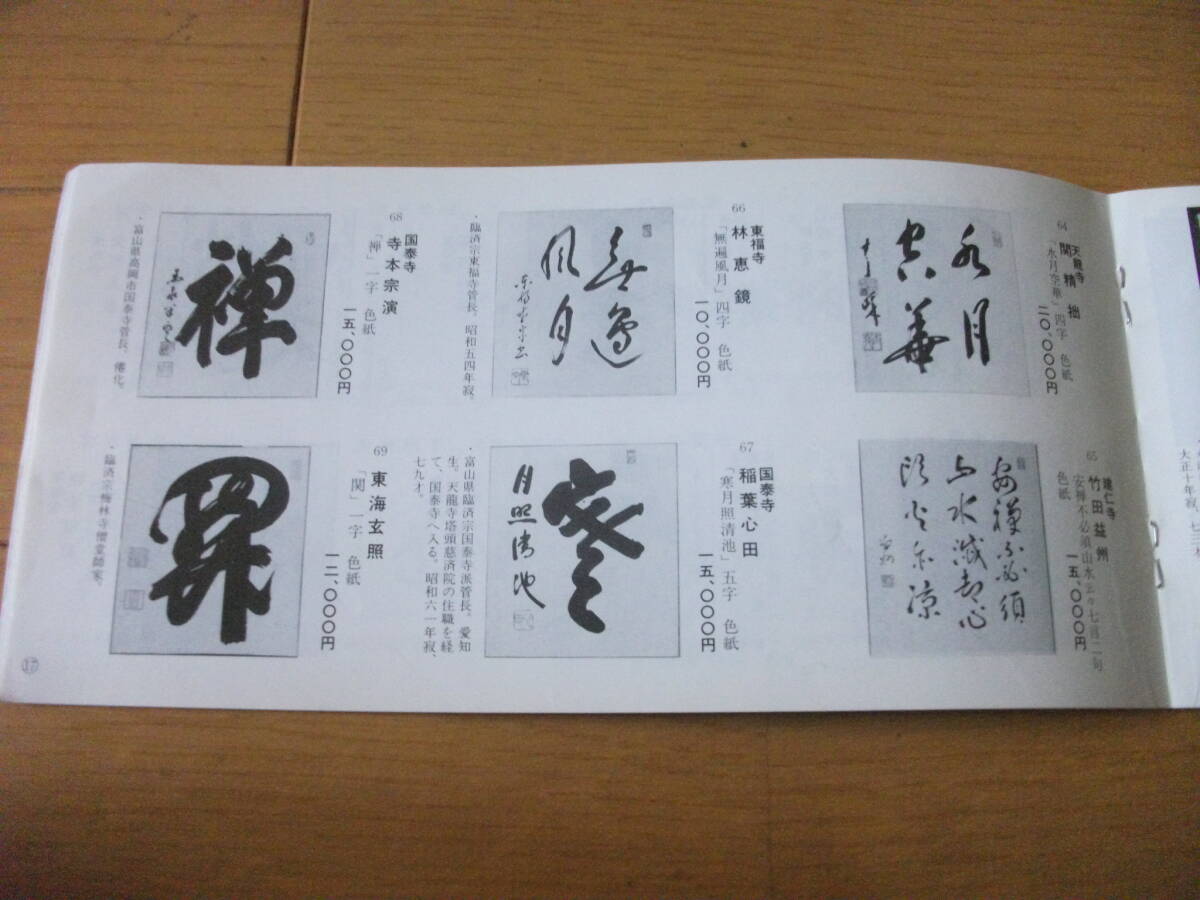 64
天龍寺
関精拙
「水月空華」四字　色紙
二〇、〇〇〇円
水月
空華
65
建仁寺
竹田益州
安禅不必須山水云々七言二句
色紙
一五、〇〇〇円
安禅不必須
山水滅却心
頭火亦涼
66
東福寺
林恵鏡
「無辺風月」四字　色紙
一〇、〇〇〇円
無邊
風月
・臨済宗東福寺管長。昭和五四年寂。
67
国泰寺
稲葉心田
「寒月照清池」五字　色紙
一五、〇〇〇円
寒
月照清池
・富山県臨済宗国泰寺派管長。愛知
生。天龍寺塔頭慈済院の住職を経
て、国泰寺へ入る。昭和六一年寂、
七九才。
68
国泰寺
寺本宗演
「禅」一字　色紙
一五、〇〇〇円
禅
・富山県高岡市国泰寺管長、僊化。
69
東海玄照
「関」一字　色紙
一二、〇〇〇円
関
・臨済宗梅林寺僧堂師家。
17
大正十年寂